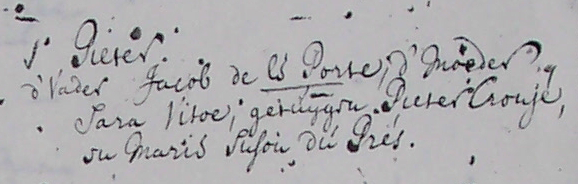 1 Pieter.
d'Vader Jacob de la Porte, d'Moeder
Sara Vitoe, getuygen Pieter Cronje,
en Marie Suson du Prés.